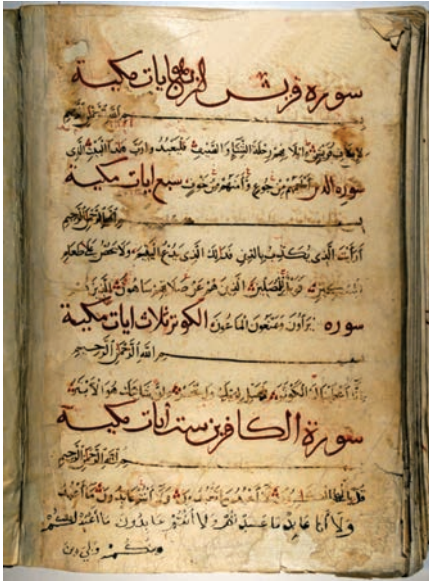 سورة قريش اربع ايات مكية
بسم الله الرحمن الرحيم
لإيلاف قريش إيلافهم رحلة الشتاء والصيف فليعبدوا رب هذا البيت الذي
سورة أطعمهم من جوع وآمنهم من خوف سبع ايات مكية
بسم الله الرحمن الرحيم
أرأيت الذي يكذب بالدين فذلك الذي يدع اليتيم ولا يحض على طعام
المسكين فويل للمصلين الذين هم عن صلاتهم ساهون الذين هم
سورة يراءون ويمنعون الماعون الكوثر ثلاث ايات مكية
بسم الله الرحمن الرحيم
إنا أعطيناك الكوثر فصل لربك وانحر إن شانئك هو الأبتر
سورة الكافرين ست آيات مكية
بسم الله الرحمن الرحيم
قل يا أيها الكافرون لا أعبد ما تعبدون ولا أنتم عابدون ما أعبد
ولا أنا عابد ما عبدتم ولا أنتم عابدون ما أعبد لكم
دينكم ولي دين